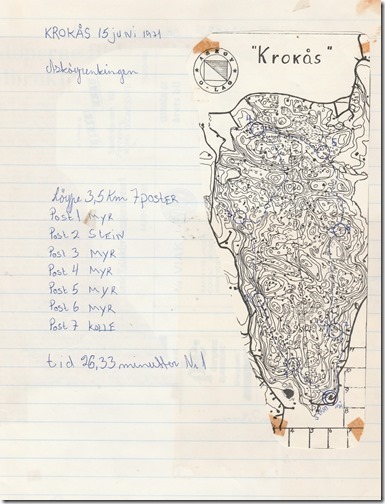 KROKÅS 15 juni 1971
"Krokås"
O-LAG
Løype 3,5 km 7 poster
Post 1 MYR
Post 2 STEIN
Post 3 MYR
Post 4 MYR
Post 5 MYR
Post 6 MYR
Post 7 KOLLE
tid 26,33 minutter Nr 1